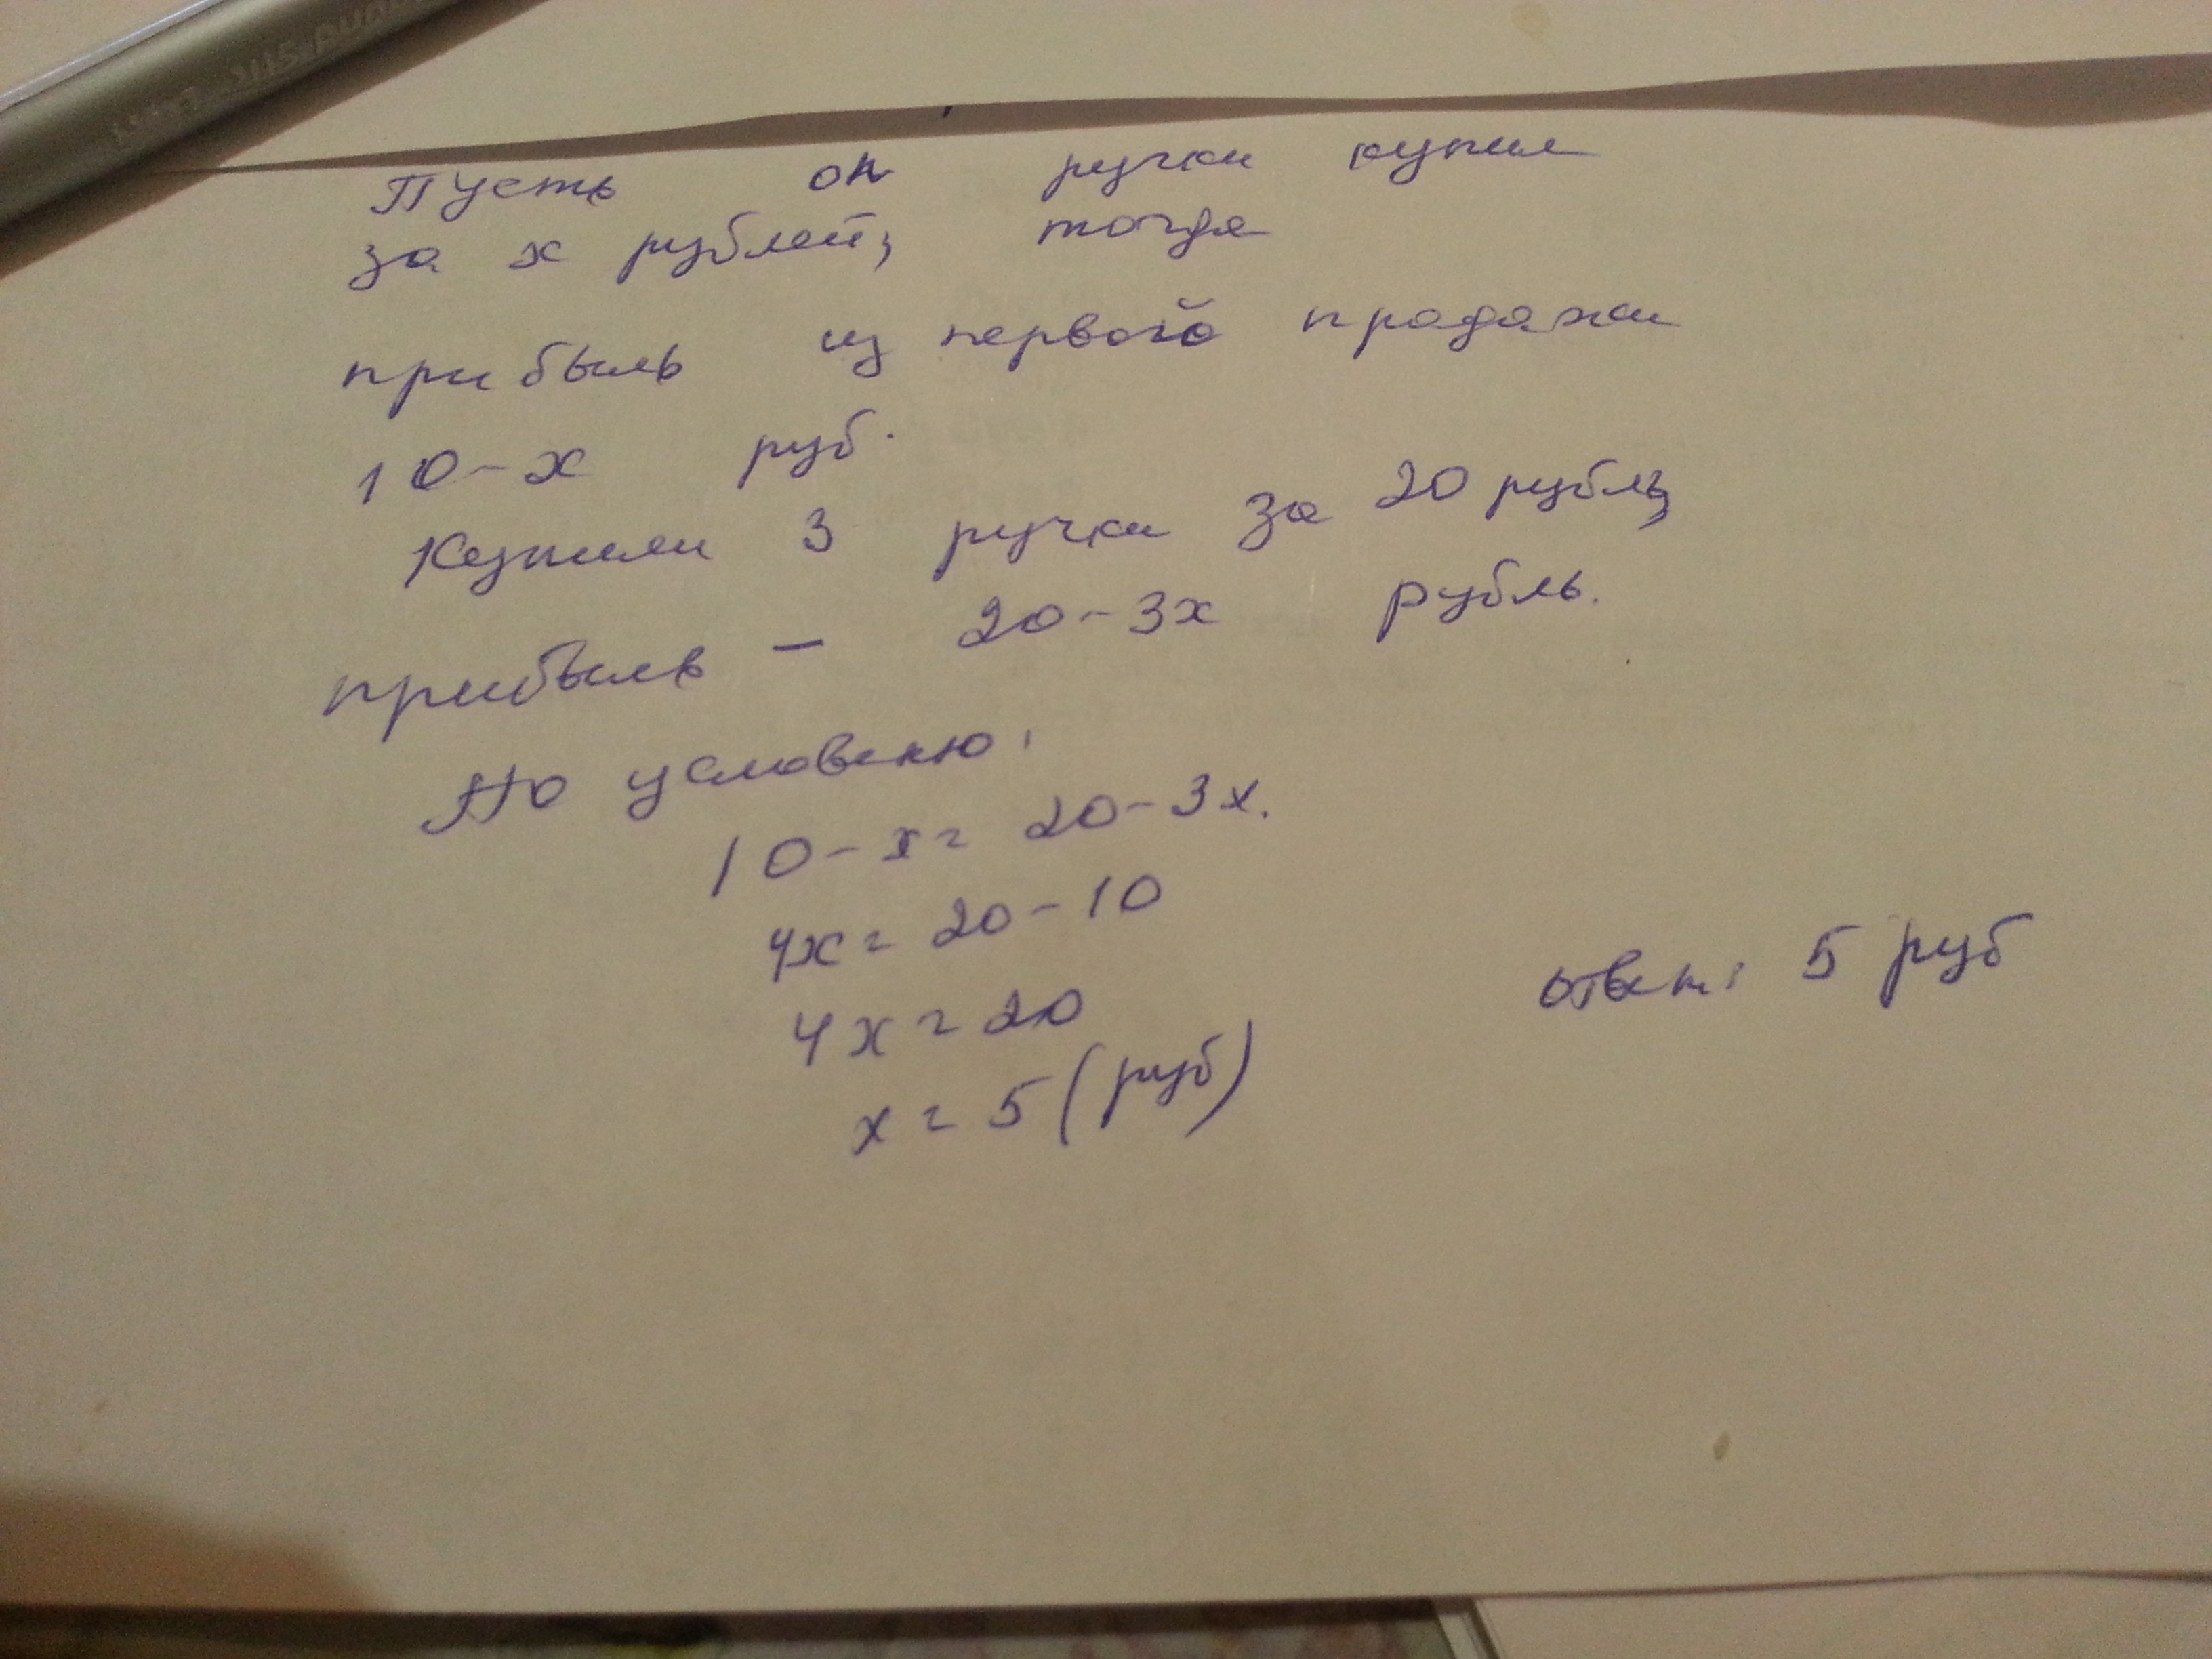 Пусть он ручки купил
за x рублей, тогда
прибыль из первой продажи
10-x руб.
Купили 3 ручки за 20 рубль,
прибыль - 20-3x рубль.
По условию:
10-x = 20-3x.
4x = 20-10
4x = 20
x = 5 (руб)
ответ: 5 руб